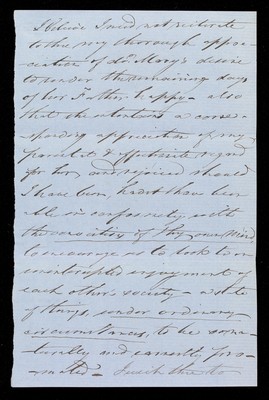 I believe I need not reiterate
to thee my thorough appre-
ciation of dr. Mary's desire
to render the remaining days
of her Father happy - also
that she entertains a corre-
sponding appreciation of my
present & affectionate regard
for her, and rejoiced should
I have been, hadst thou been
able in conformity with
the convictions of thy own Mind
to encourage us to look to an
uninterrupted enjoyment of
each other's society - a state
of things, under ordinary
circumstances, to be so na-
turally and earnestly pro-
moted -